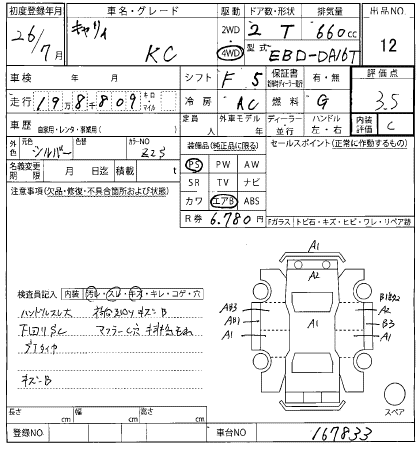 初度登録年月 車名・グレード 駆動 ドア数・形状 排気量 出品NO
26/7月 キャリイ KC 2WD 4WD 2 T 660cc 12
型式 EBD-DA16T
車検 年 月 シフト F 5 保証書 有・無 評価点
走行 19万8千809 キロ・マイル 冷房 AC 燃料 G 3.5
車歴 自家用・レンタ・事業用( ) 定員 人 外車モデル 年 ディーラー・並行 ハンドル 左・右 内装評価 C
外色 元色 シルバー 色替 カラーNO Z2S 装備品(純正品に限る) セールスポイント(正常に作動するもの)
名義変更期限 月 日迄 積載 t PS PW AW
注意事項(欠品・修復・不具合箇所および状態) SR TV ナビ
カワ エアB ABS
R券 6,780円
Fガラス トビ石・キズ・ヒビ・ワレ・リペア跡
A1
A2
検査員記入 内装 汚レ・スレ・キズ・キレ・コゲ・穴
ハンドルスレ大 荷台 キズB
下回りSC マフラー穴 排気もれ
キズB
AB3 A1 A1
A1
B1 A2 B3 A1
A1
スペア
長さ cm 幅 cm 高さ cm
登録NO. 車台NO. 167833